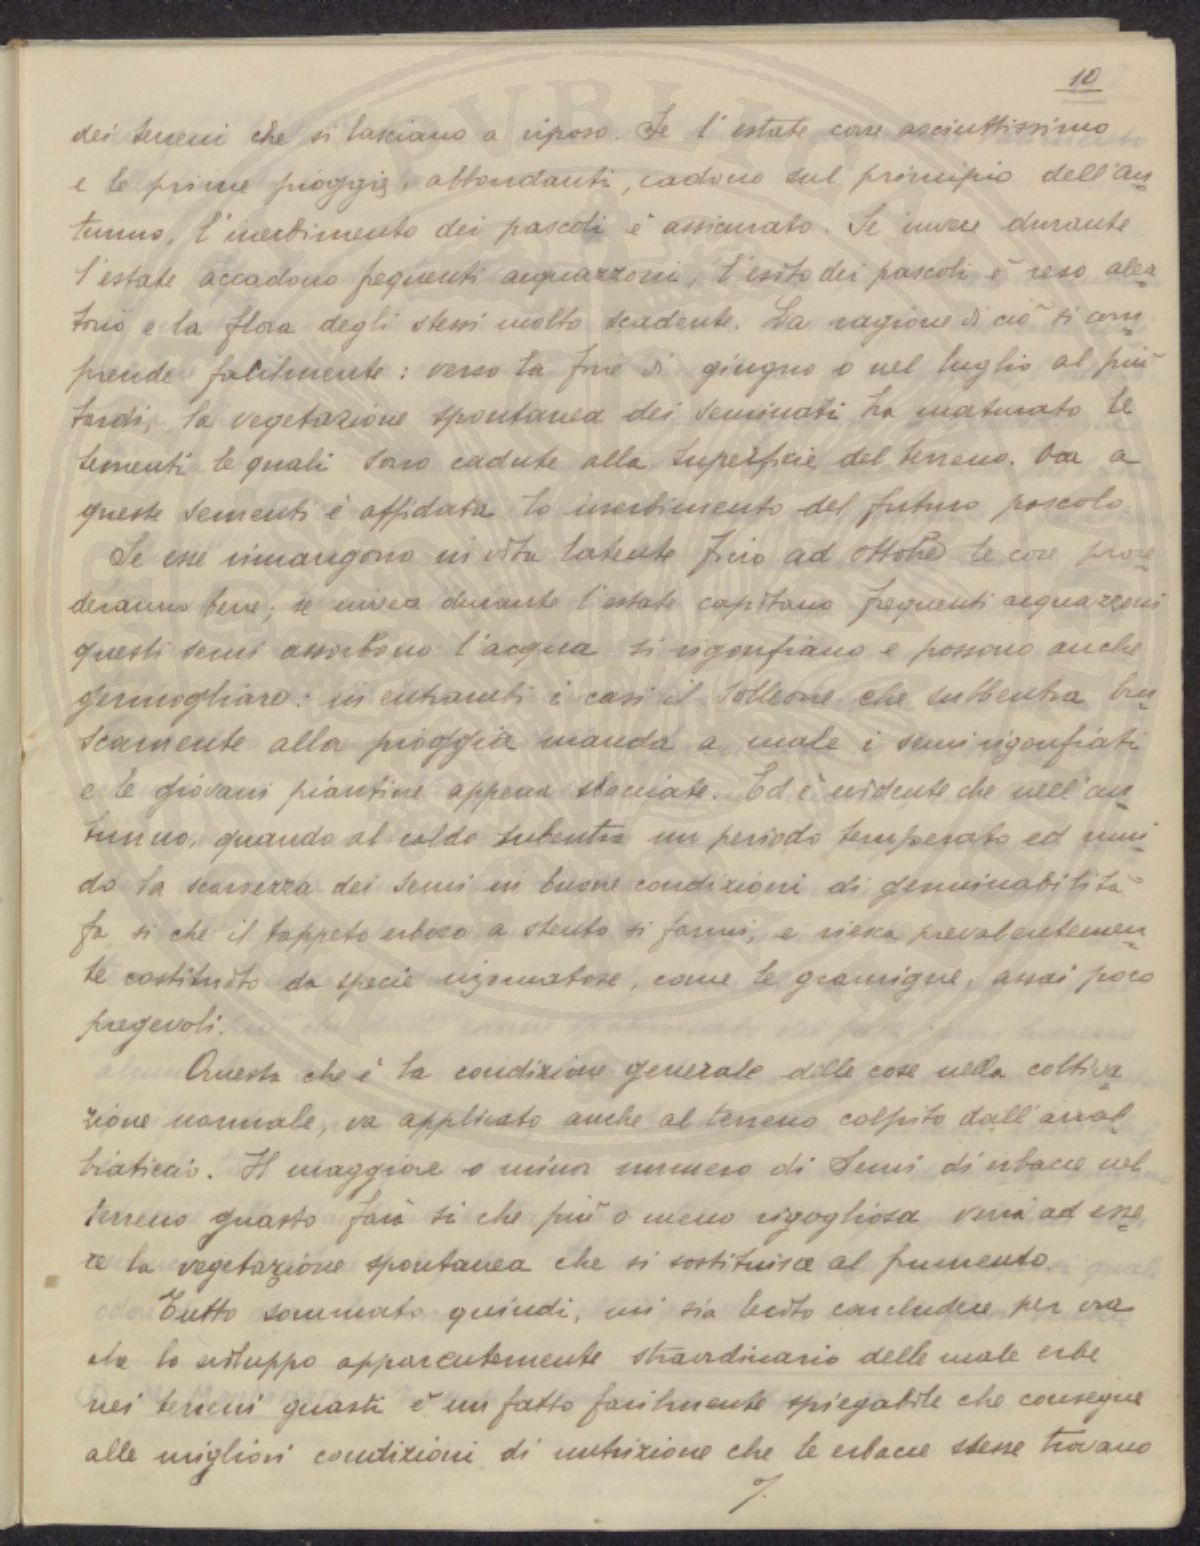 10
dei terreni che si lasciano a riposo. Se l'estate corre asciuttissimo
e le prime pioggie, abbondanti, cadono sul principio dell'au
tunno, l'inerbimento dei pascoli è assicurato. Se invece durante
l'estate accadono frequenti acquazzoni, l'esito dei pascoli è reso alea
torio e la flora degli stessi molto scadente. La ragione di ciò si com
prende facilmente: verso la fine di giugno o nel luglio al più
tardi, la vegetazione spontanea dei seminati ha maturato le
sementi le quali sono cadute alla superficie del terreno. Ora a
queste sementi è affidata lo inerbimento del futuro pascolo.
Se esse rimangono in vita latente fino ad ottobre le cose proce
deranno bene; se invece durante l'estate capitano frequenti acquazzoni
questi semi assorbono l'acqua si rigonfiano e possono anche
germogliare: in entrambi i casi il solleone che subbentra bru
scamente alla pioggia manda a male i semi rigonfiati
e le giovani piantine appena sbocciate. Ed è evidente che nell'au
tunno, quando al caldo subentra un periodo temperato ed umi
do la scarsezza dei semi in buone condizioni di germinabilità
fa si che il tappeto erboso a stento si formi, e riesca prevalentemen
te costituito da specie rizomatose, come le gramigne, assai poco
pregevoli.
Questa che è la condizione generale delle cose nella coltiva
zione normale, va applicato anche al terreno colpito dall'arrab
biaticcio. Il maggiore o minor numero di semi di erbacce nel
terreno guasto farà si che più o meno rigogliosa verrà ad esse
re la vegetazione spontanea che si sostituisce al frumento.
Tutto sommato quindi, mi sia lecito concludere per ora
che lo sviluppo apparentemente straordinario delle male erbe
nei terreni guasti è un fatto facilmente spiegabile che consegue
alle migliori condizioni di nutrizione che le erbacce stesse trovano
./.